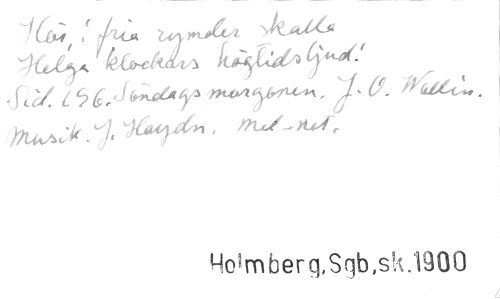 Hör, i fria rymder skalla
Helga klockors högtidsljud!
Sid. 156. Söndagsmorgonen. J. O. Wallin.
Musik. J. Haydn. mel-not.
Holmberg,Sgb,sk.1900